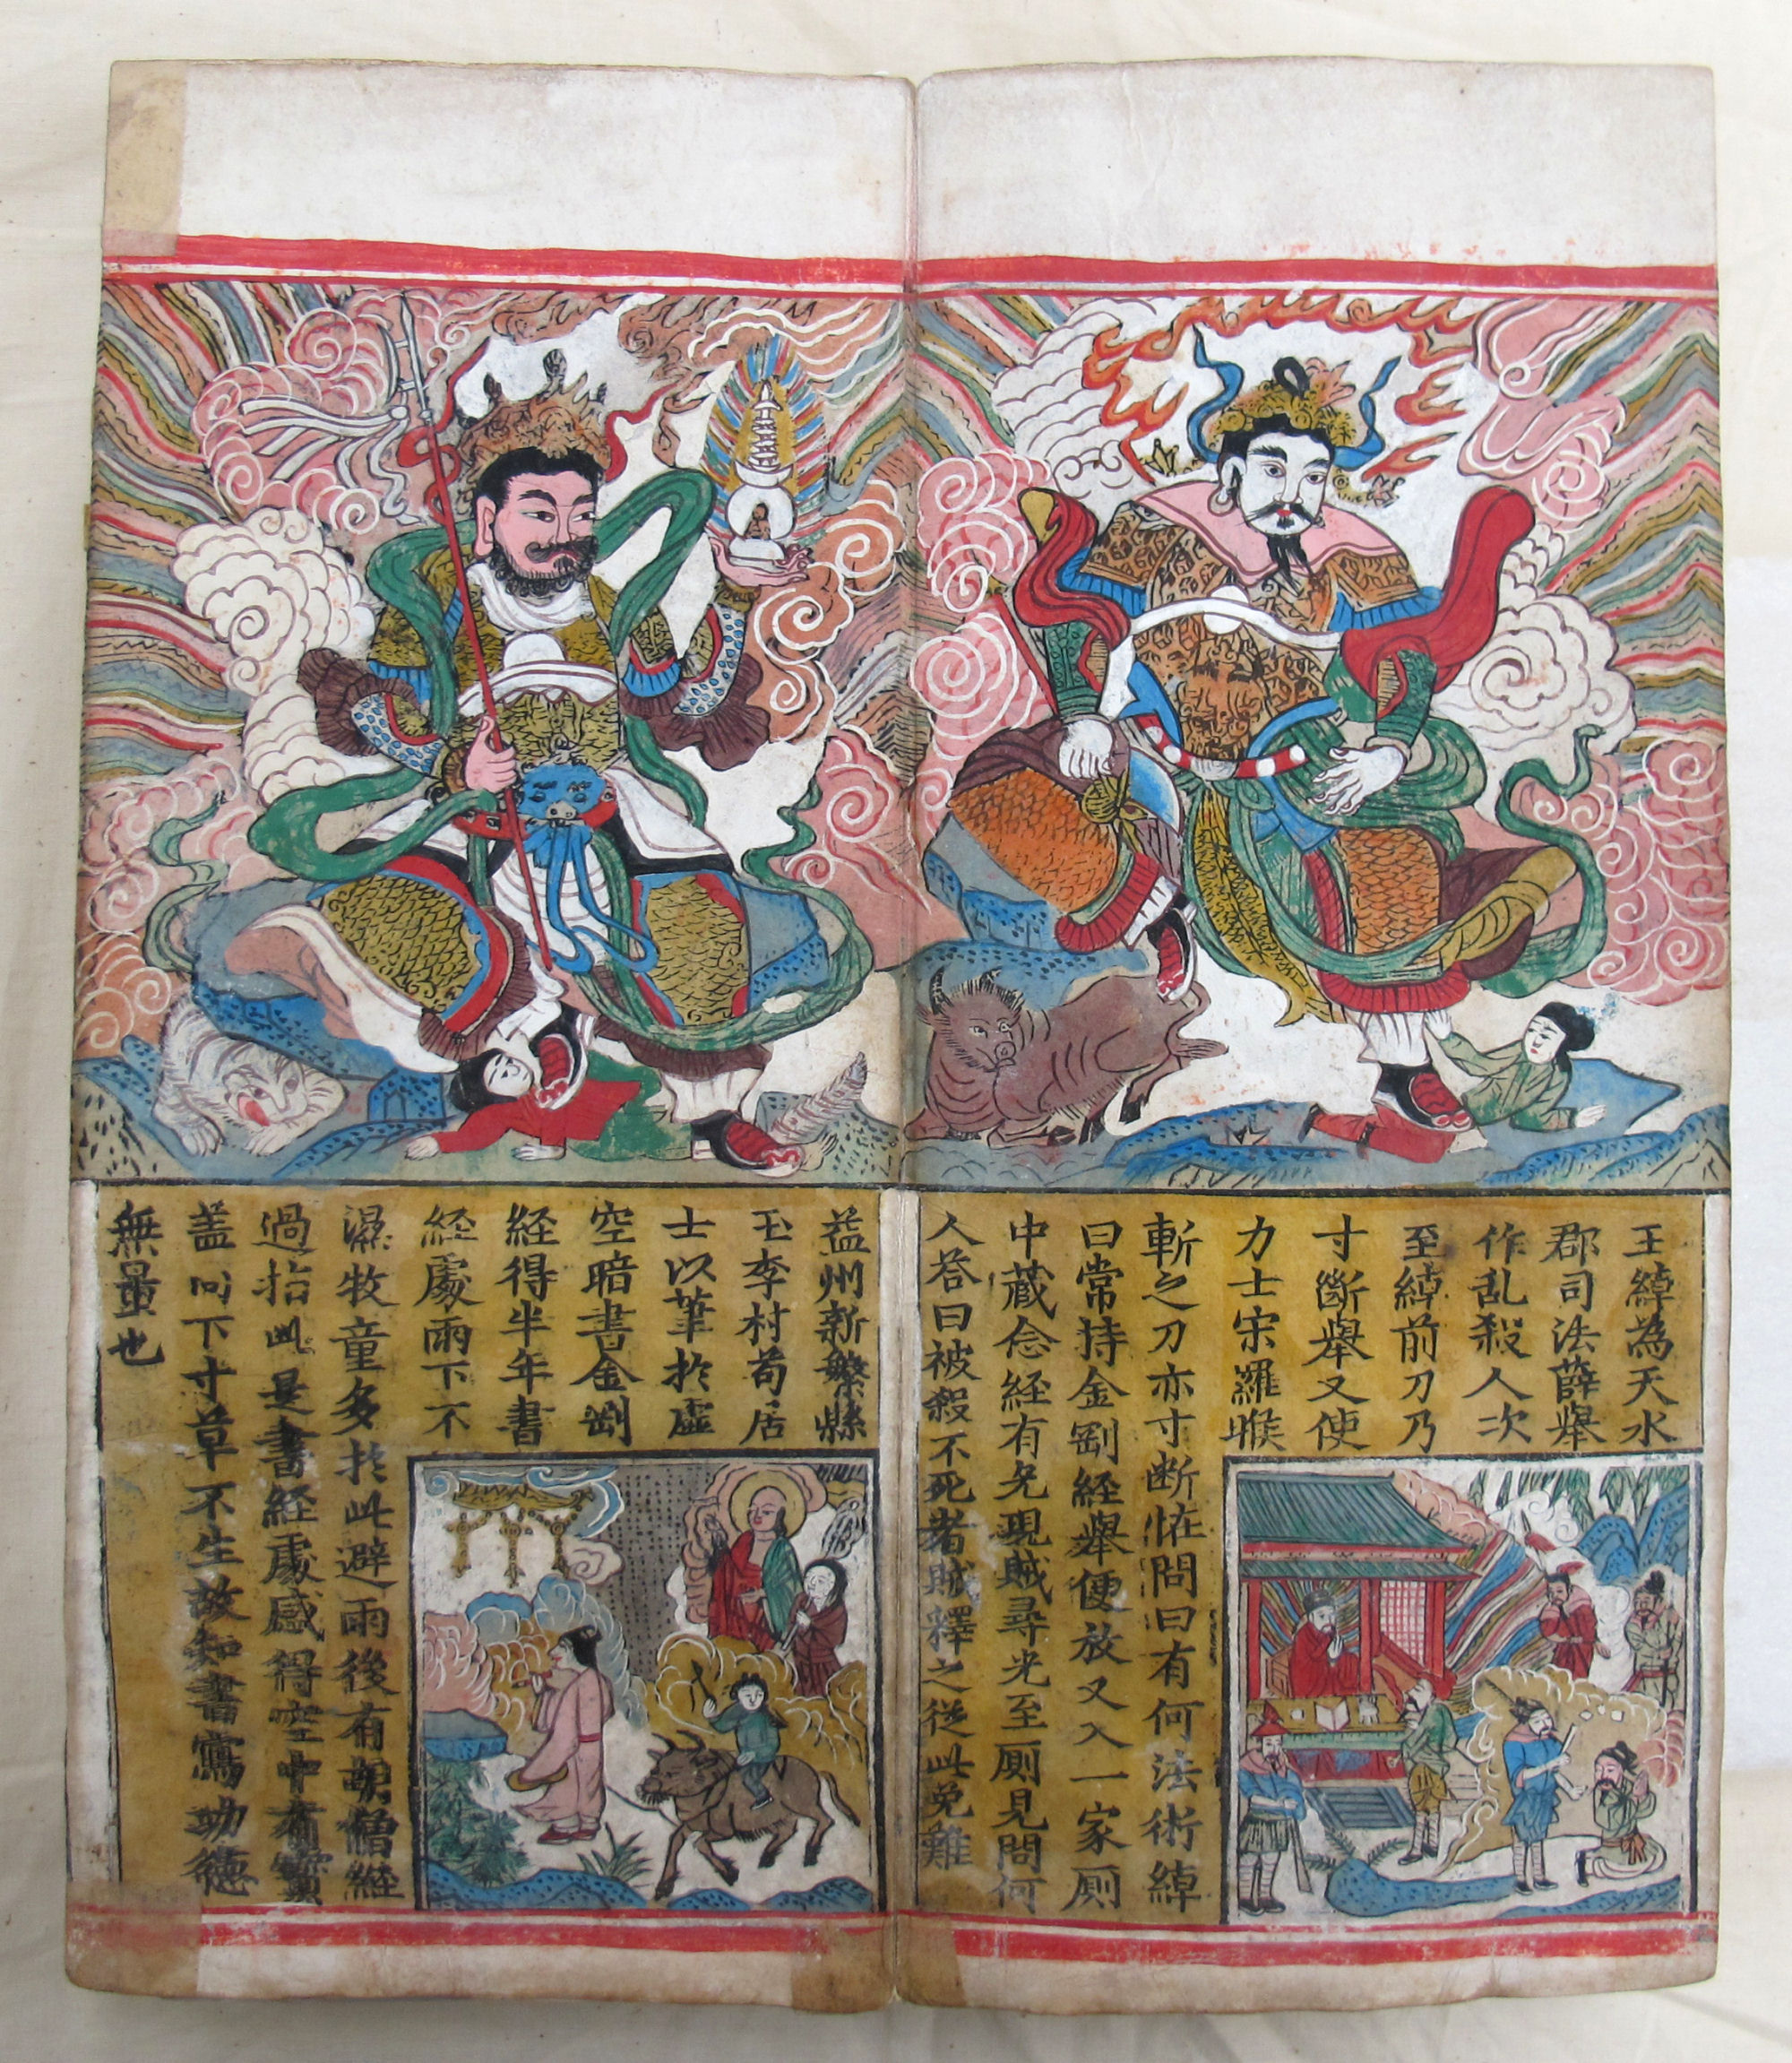 王綽為天水
郡司法薛舉
作乱殺人次
至綽前刀乃
寸斷舉又使
力士宋羅睺
斬之刀亦寸断恠問曰有何法術綽
曰常持金剛経舉便放又入一家厕
中蔵念経有光現賊尋光至厕見問何
人答曰被殺不死者賊釋之従此免難
益州新繁縣
王李村苟居
士以筆扵虛
空暗書金剛
経得半年書
経處雨下不
濕牧童多扵此避雨後有胡僧経
過指此是書経處感得空中有寳
盖向下寸草不生故知書寫功德
無量也